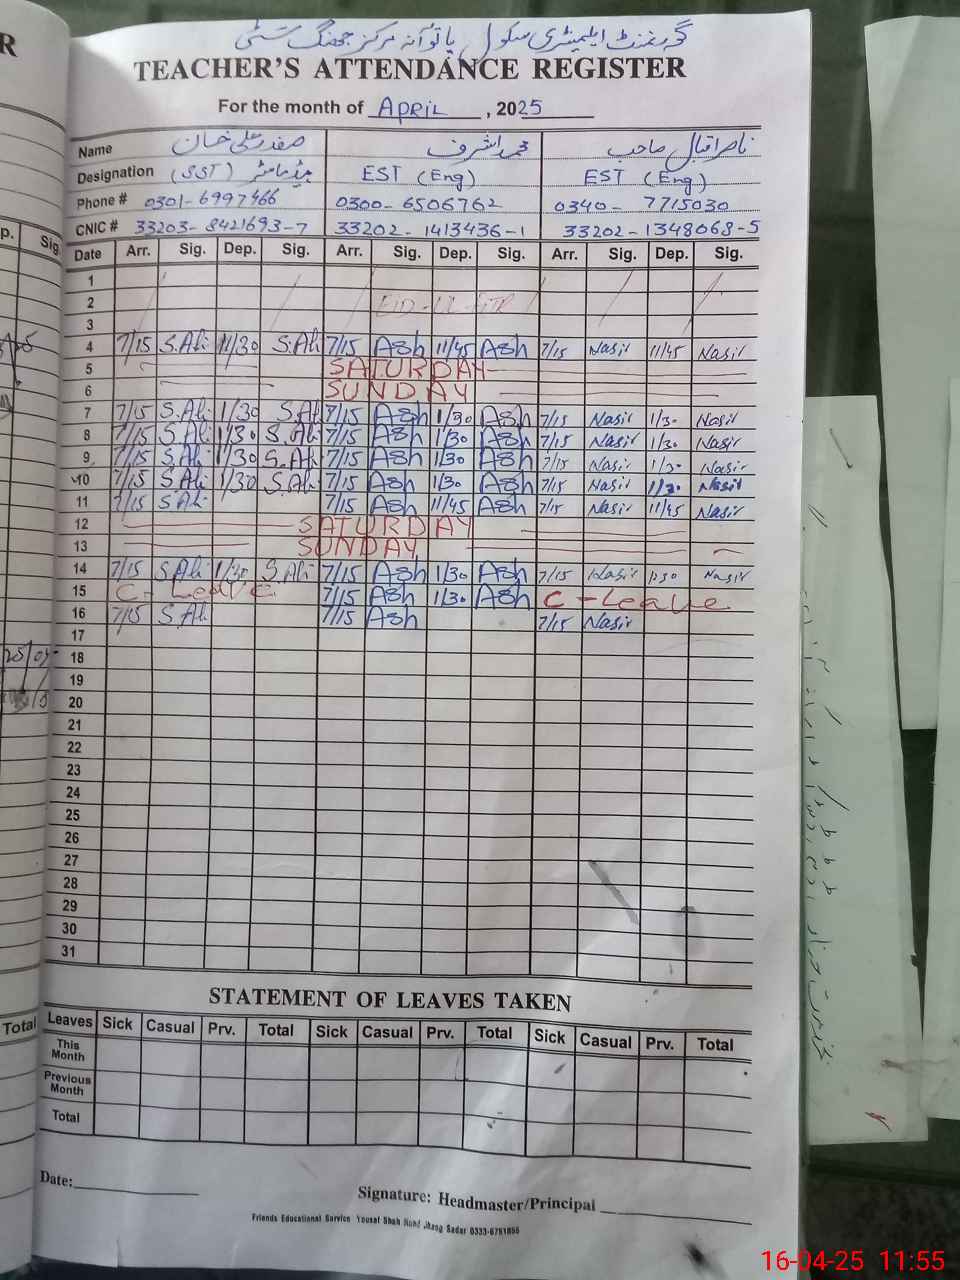 گورنمنٹ ایلیمنٹری سکول پاتوآنہ مرکز جھنگ سٹی
TEACHER'S ATTENDANCE REGISTER
For the month of APRIL, 2025
Name صفدر علی خان محمد اشرف ناصر اقبال صاحب
Designation (SST) ہیڈ ماسٹر EST (Eng) EST (Eng)
Phone # 0301-6997466 0300-6506762 0340-7715030
CNIC # 33203-8421693-7 33202-1413436-1 33202-1348068-5
Date Arr. Sig. Dep. Sig. Arr. Sig. Dep. Sig. Arr. Sig. Dep. Sig.
1
2 EID-UL-FITR
3
4 7/15 S.Ali 11/30 S.Ali 7/15 Ash 11/45 Ash 7/15 Nasir 11/45 Nasir
5 SATURDAY
6 SUNDAY
7 7/15 S.Ali 1/30 S.Ali 7/15 Ash 1/30 Ash 7/15 Nasir 1/30 Nasir
8 7/15 S.Ali 1/30 S.Ali 7/15 Ash 1/30 Ash 7/15 Nasir 1/30 Nasir
9 7/15 S.Ali 1/30 S.Ali 7/15 Ash 1/30 Ash 7/15 Nasir 1/30 Nasir
10 7/15 S.Ali 1/30 S.Ali 7/15 Ash 1/30 Ash 7/15 Nasir 1/30 Nasir
11 7/15 S.Ali 7/15 Ash 11/45 Ash 7/15 Nasir 11/45 Nasir
12 SATURDAY
13 SUNDAY
14 7/15 S.Ali 1/30 S.Ali 7/15 Ash 1/30 Ash 7/15 Nasir 1:30 Nasir
15 C-Leave 7/15 Ash 1/30 Ash C-Leave
16 7/15 S.Ali 7/15 Ash 7/15 Nasir
17
18
19
20
21
22
23
24
25
26
27
28
29
30
31
STATEMENT OF LEAVES TAKEN
Leaves Sick Casual Prv. Total Sick Casual Prv. Total Sick Casual Prv. Total
This Month
Previous Month
Total
Date:
Signature: Headmaster/Principal
Friends Educational Service Yousaf Shah Road Jhang Sadar
R
p. Sig
Total
16-04-25 11:55